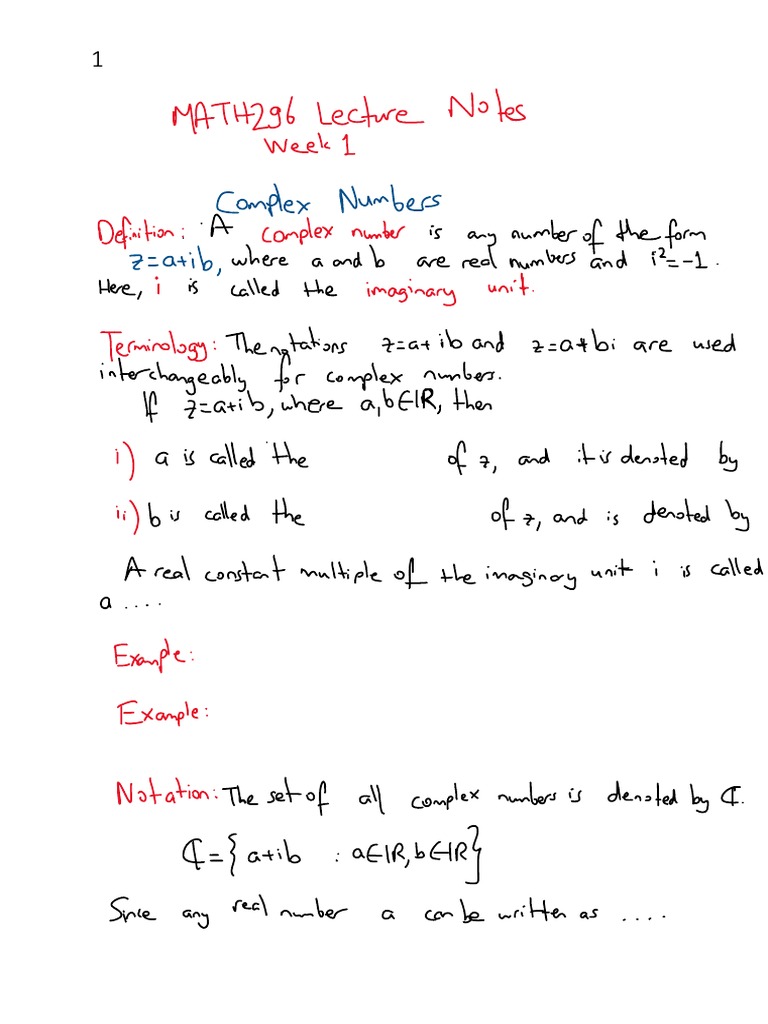 1
MATH296 Lecture Notes
Week 1
Complex Numbers
Definition: A complex number is any number of the form
z=a+ib, where a and b are real numbers and i²=-1.
Here, i is called the imaginary unit.
Terminology: The notations z=a+ib and z=a+bi are used
interchangeably for complex numbers.
If z=a+ib, where a,b∈ℝ, then
i) a is called the of z, and it is denoted by
ii) b is called the of z, and is denoted by
A real constant multiple of the imaginary unit i is called
a ....
Example:
Example:
Notation: The set of all complex numbers is denoted by ℂ.
ℂ={a+ib : a∈ℝ, b∈ℝ}
Since any real number a can be written as ....